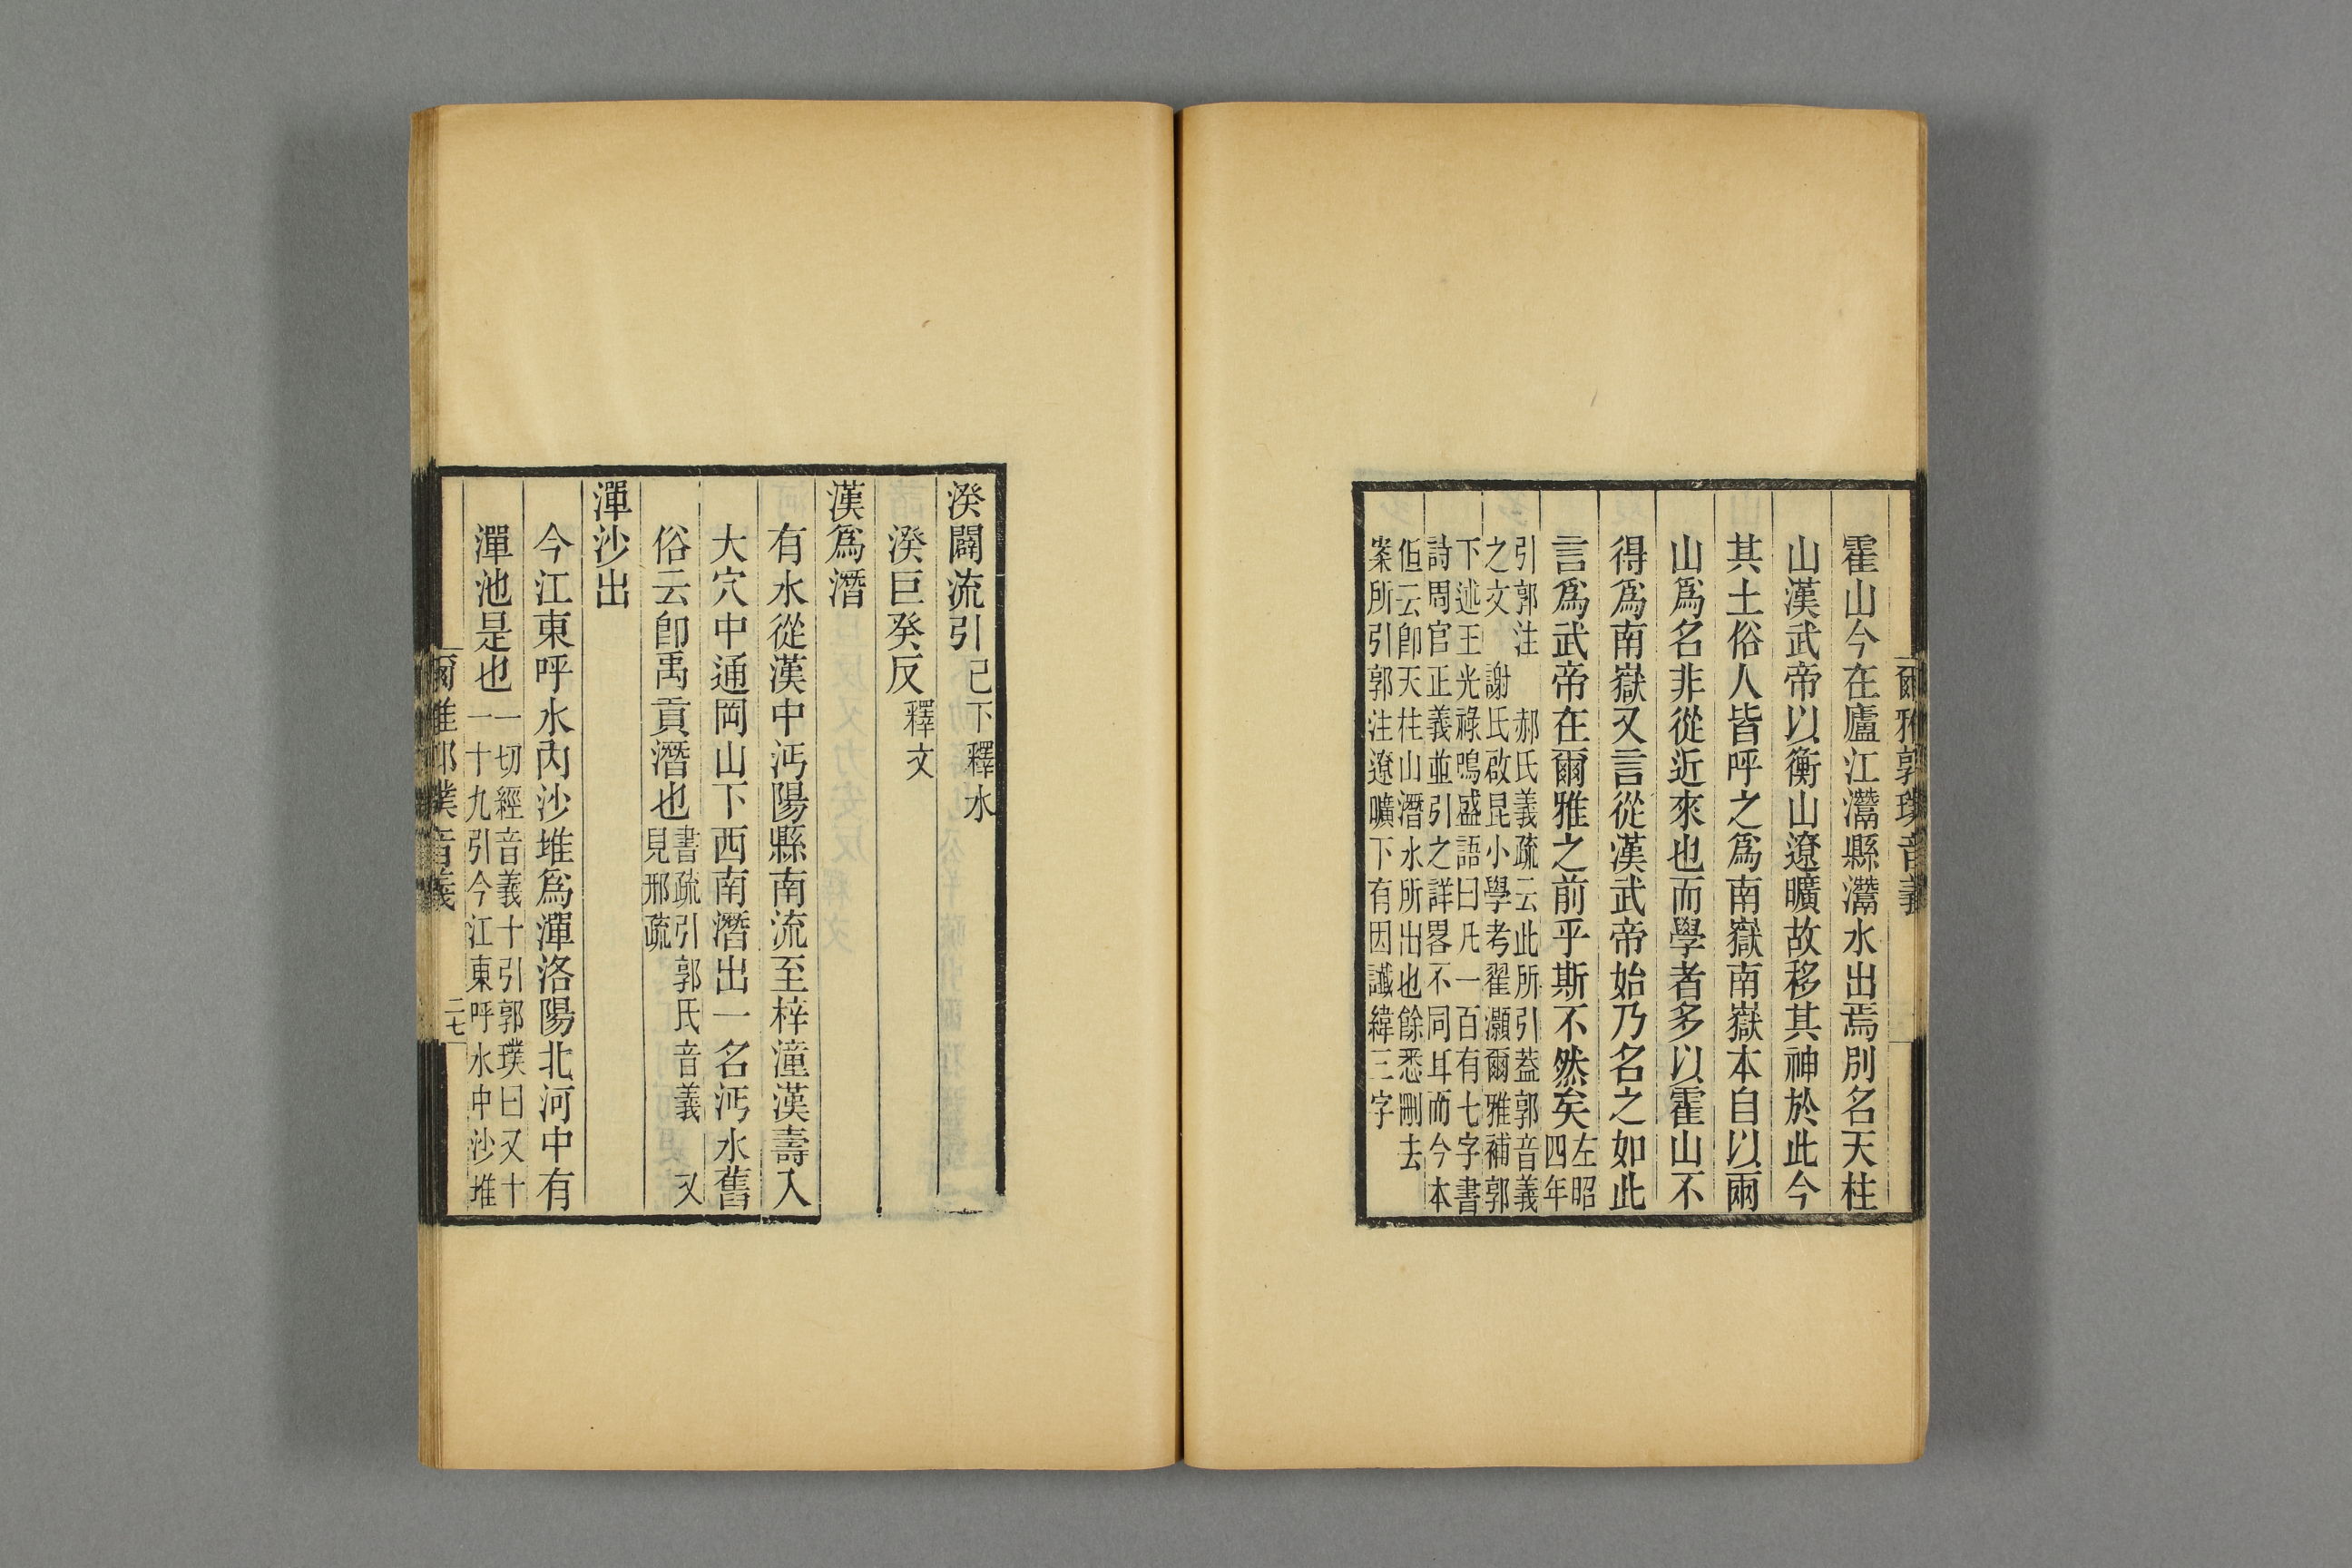 爾雅郭璞音義
霍山今在廬江灊縣灊水出焉別名天柱
山漢武帝以衡山遼曠故移其神於此今
其土俗人皆呼之爲南嶽南嶽本自以兩
山爲名非從近來也而學者多以霍山不
得爲南嶽又言從漢武帝始乃名之如此
言爲武帝在爾雅之前乎斯不然矣左昭
四年
引郭注 郝氏義疏云此所引蓋郭音義
之文 謝氏啟昆小學考翟灝爾雅補郭
下述王光祿鳴盛語曰凡一百有七字書
詩周官正義並引之詳畧不同耳而今本
但云卽天柱山潛水所出也餘悉刪去
案所引郭注遼曠下有因讖緯三字
湀闢流引已下釋水
湀巨癸反釋文
漢爲潛
有水從漢中沔陽縣南流至梓潼漢壽入
大穴中通岡山下西南潛出一名沔水舊
俗云卽禹貢潛也書疏引郭氏音義 又
見邢疏
潬沙出
今江東呼水內沙堆爲潬洛陽北河中有
潬池是也一切經音義十引郭璞曰又十
一十九引今江東呼水中沙堆
爾雅郭璞音義
二七